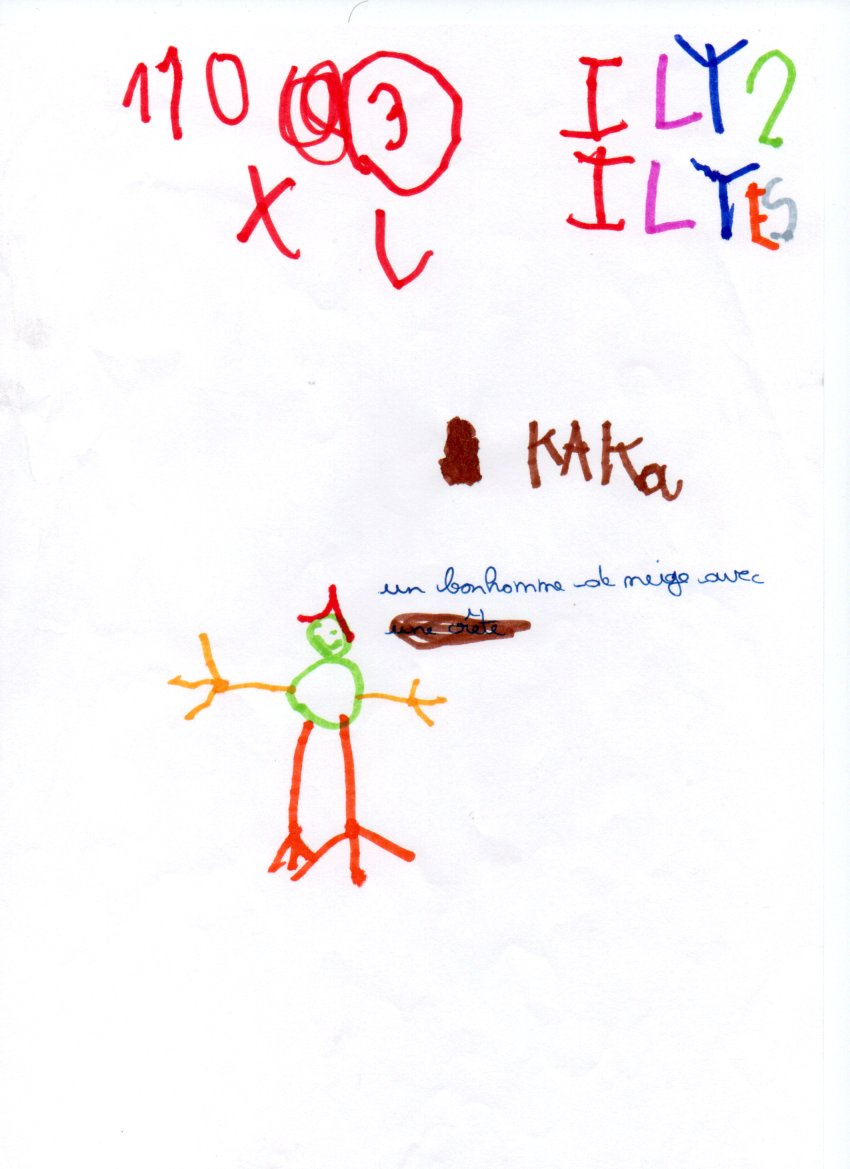 110 3 ILY2
X L ILYES
KAKa
un bonhomme de neige avec
une crête